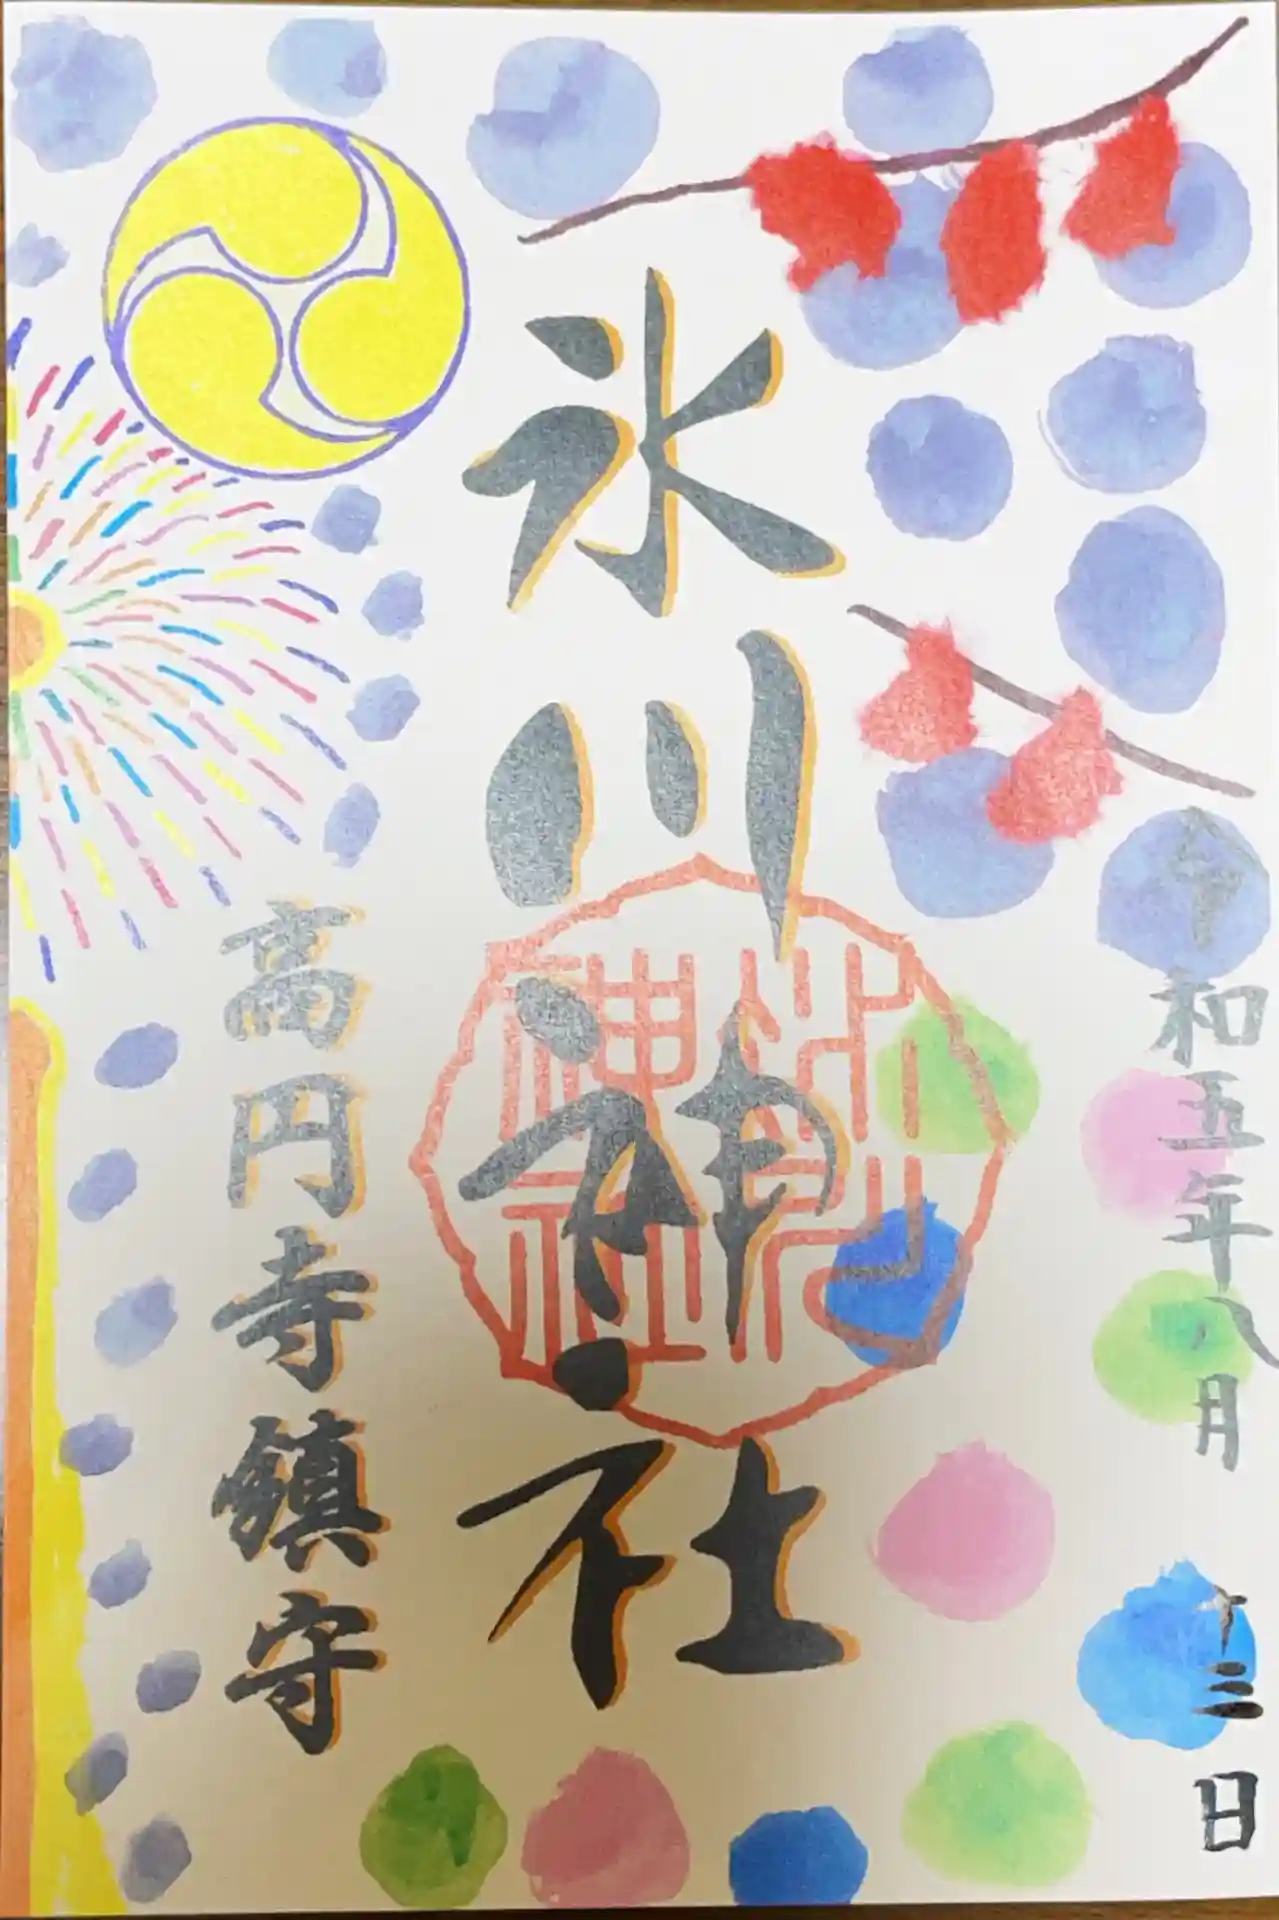 令和五年八月十三日
氷川神社
高円寺鎮守